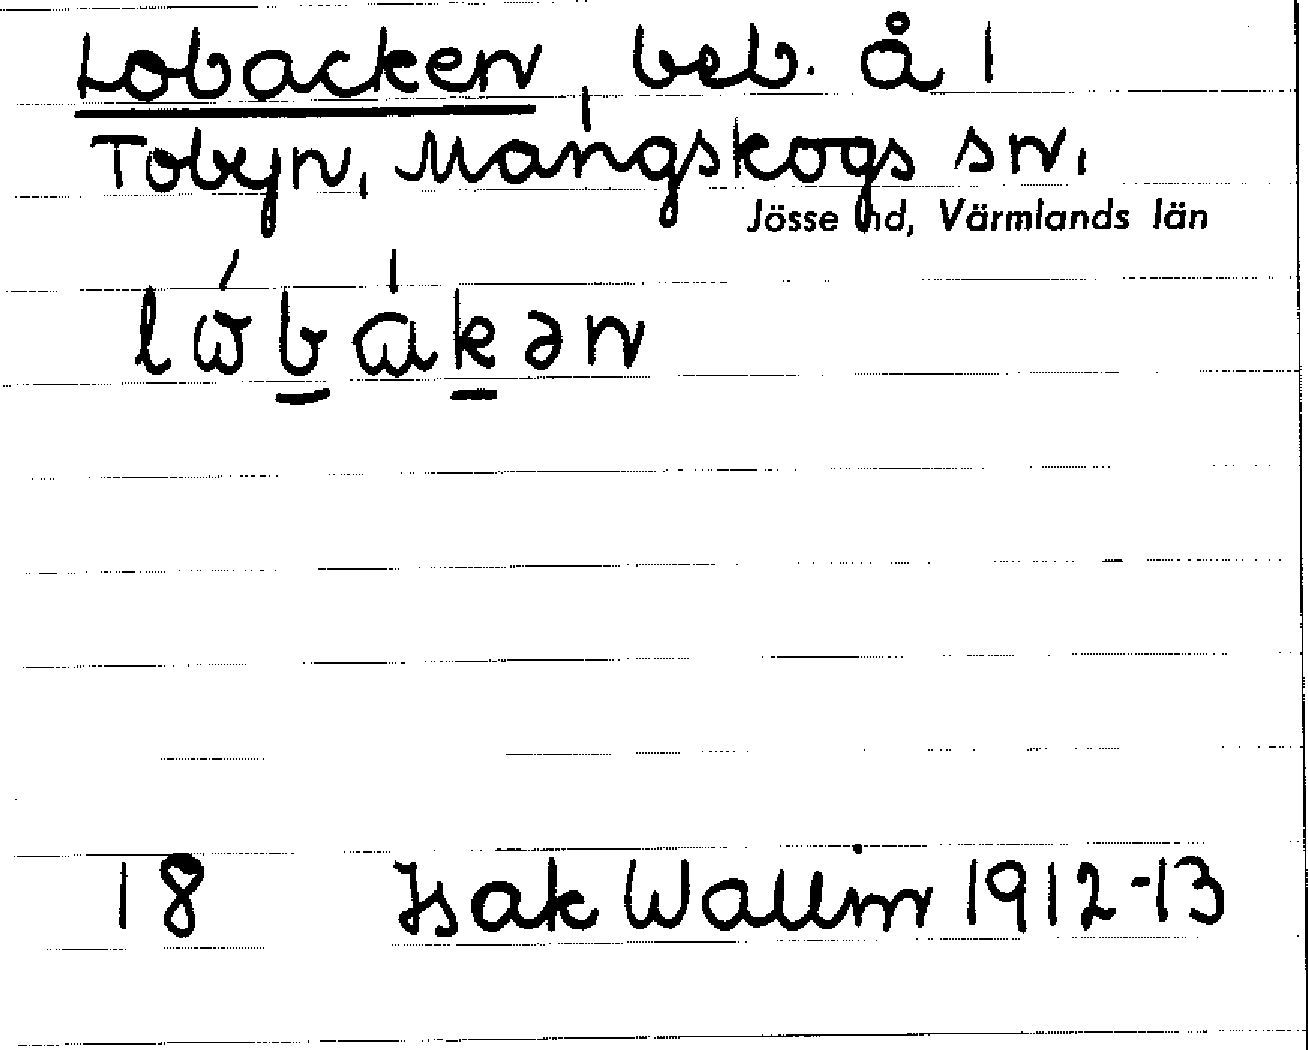 Lobacken, beb. å 1
Tobyn, Mangskogs sn.
Jösse hd, Värmlands län
lɷ́bákən
18 Isak Wallin 1912-13